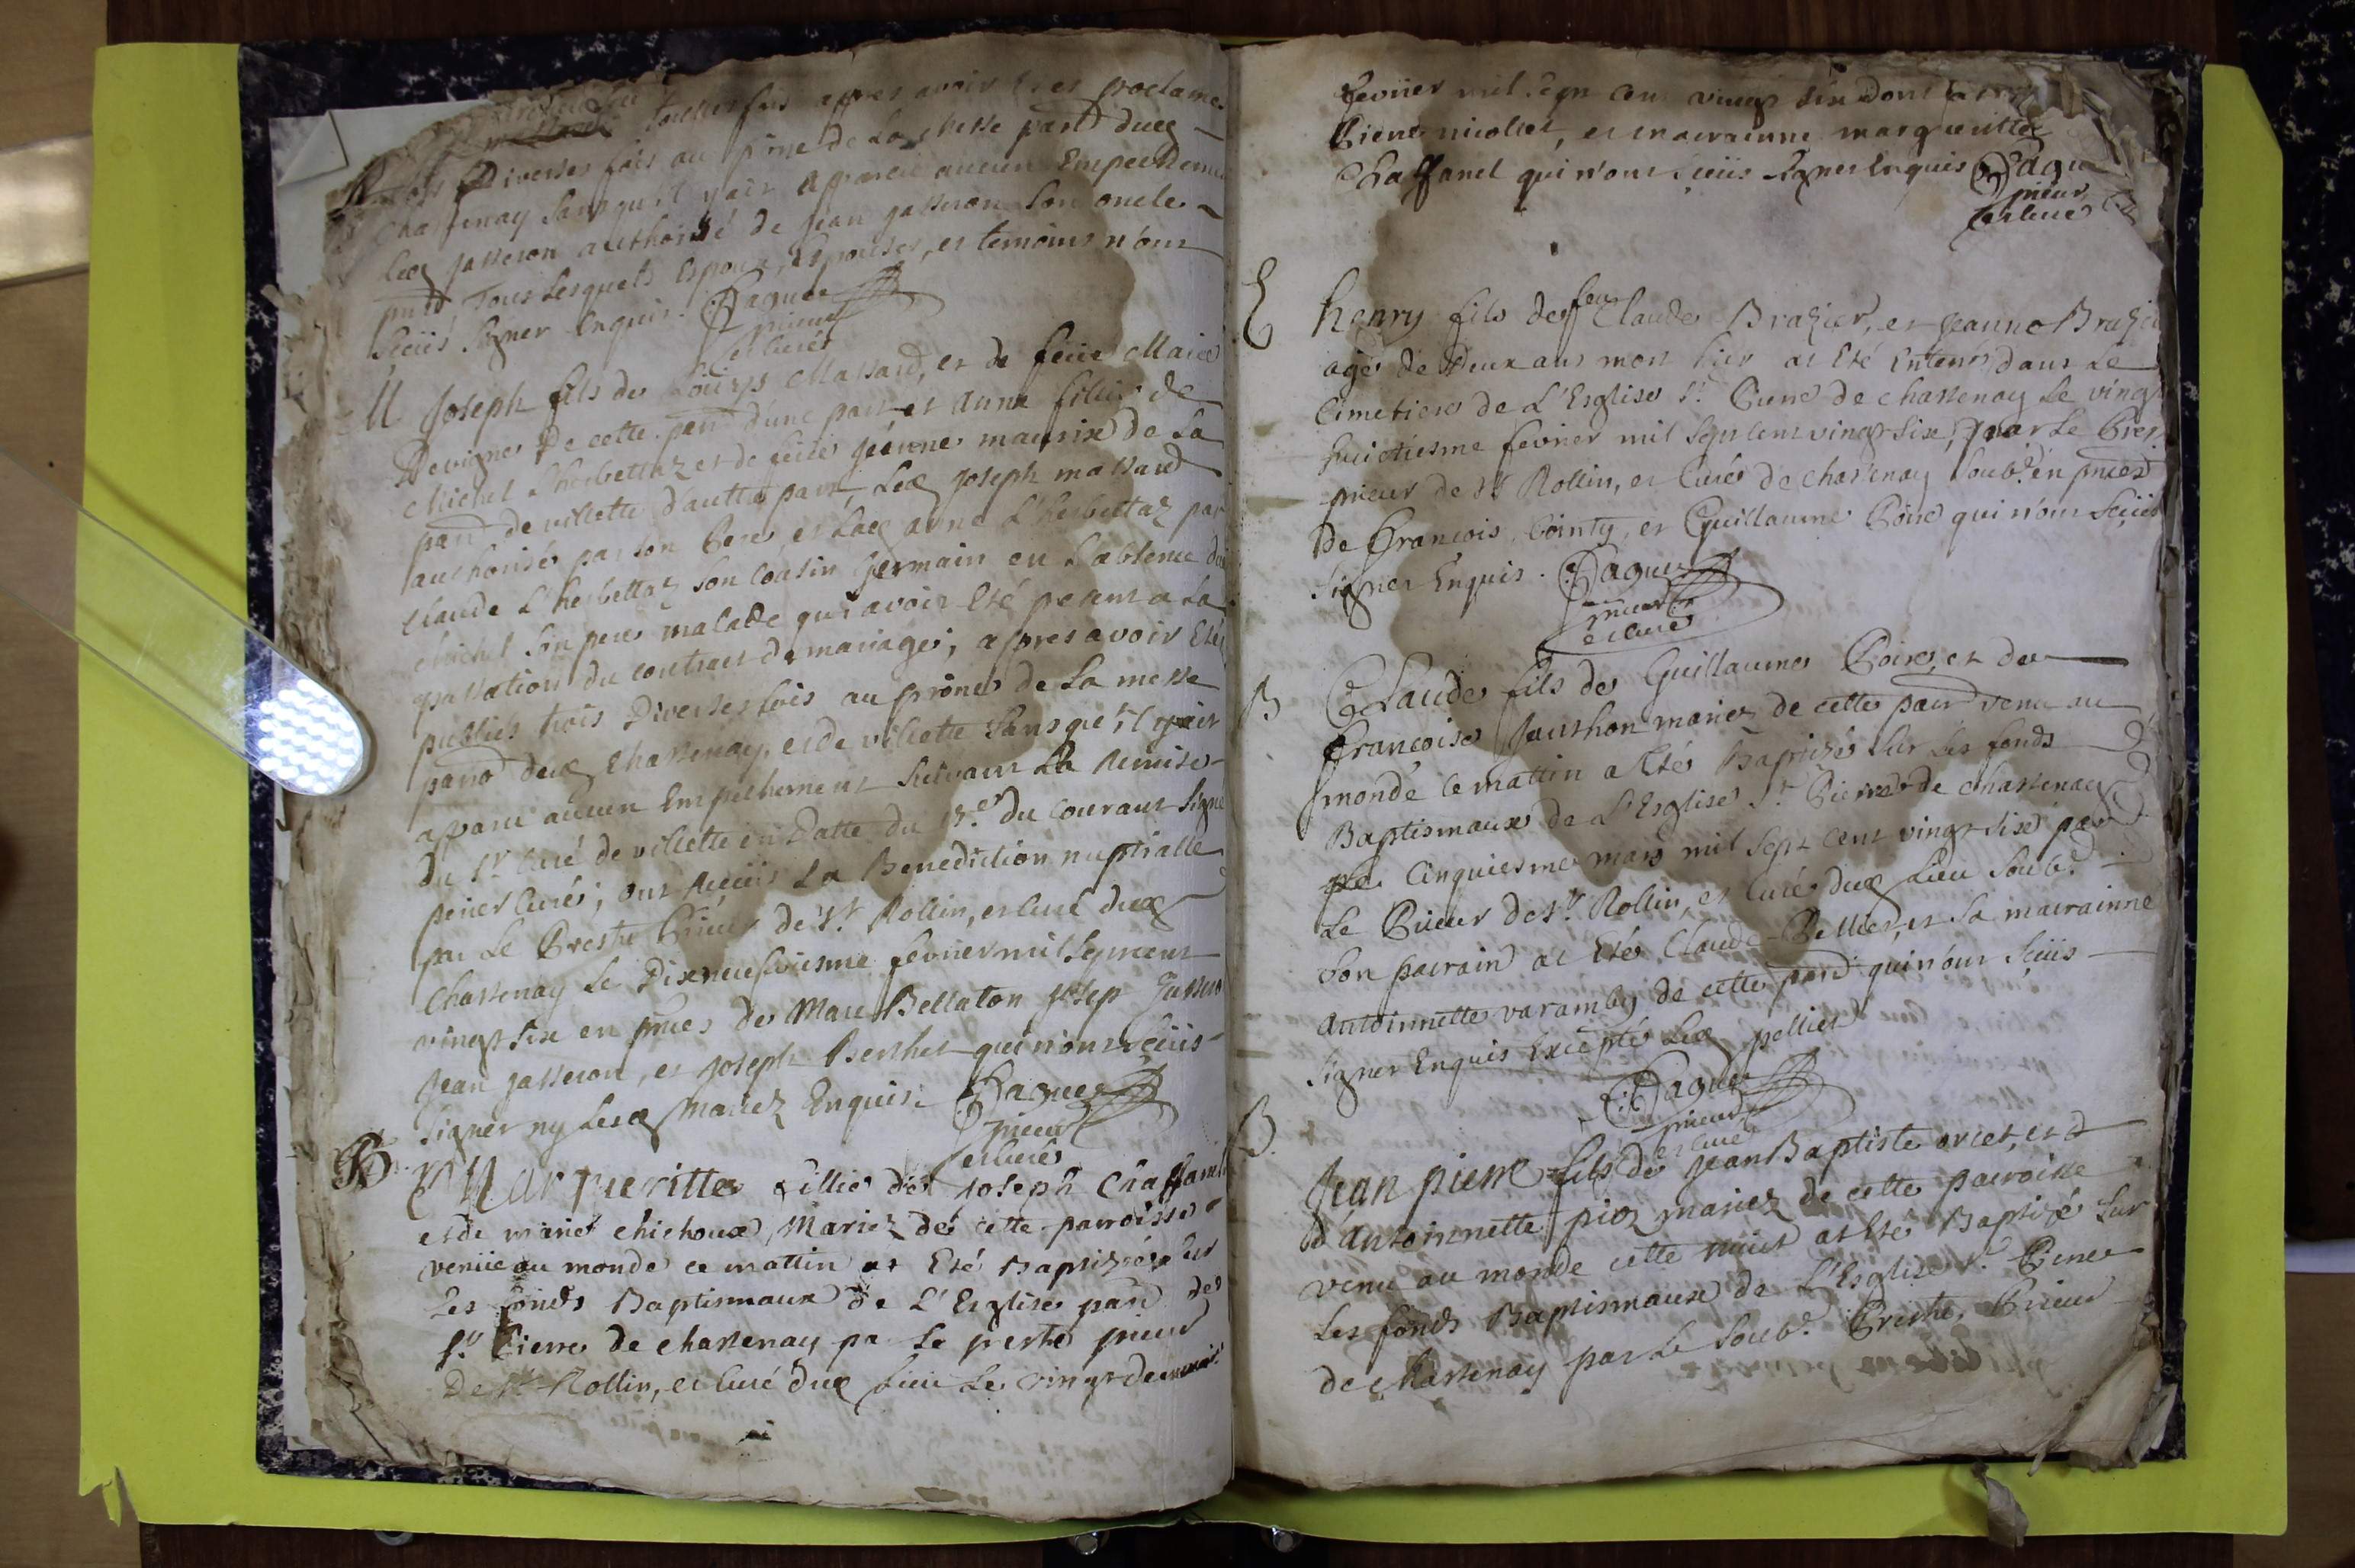 toutesfois appres avoir Etez proclamé
trois Diverses fois au prône de La Messe parro.^lle dud.
Chastenay Sans qu'il y ait appareu aucun Empechement
Led. Jasseron authorisé de Jean Jasseron Son oncle
Tous Lesquels Espoux, Espouse, et temoins n'ont
Sceüs Signer Enquis. Daguer
prieur
et Curé
M Joseph fils de Louïys Massard, et de feüe Marie
Devignes De cette par.^sse d'une part et Anne fillie de
Michel L'herbettaz et de feüe jéanne maurise de La
par.^sse de villette d'autre part, Led. Joseph massard
authorisé par Son Pere, et Lad. anne L'herbettaz par
Claude L'herbettaz Son Coasin Germain en L'absence de
Michel Son pere malade qui avoir Eté present a La
passation du contract de mariage; apres avoir Eté
publiés trois Diverses fois au prône de La messe
parro.^lle dud. Chastenay, et de villette Sans que'il y ait
apparu aucun Empechement Suivant La Remise
Du S.^r Curé de villette en Datte du 15.^e du Courant Signé
perier Curé; ont Receüs La Benediction nuptialle
par Le Prestre Prieur de S.^t Rollin, et Curé dud.
Chastenay Le Dixneufviesme fevrier mil Septcent
vingt Six en pnces de Marc Bellaton Josep Jasseron
Jean Jasseron, et Joseph Berthet qui n'ont Sceüs
Signer ny Lesd. Mariez Enquis. Daguer
prieur
et Curé
B. Margueritte fillie de Joseph Chaffanel
et de marie Chichoux, Mariez de cette parroisse
venüe au monde ce mattin at Eté Baptizée Sur
Les fonds Baptismaux de L'Eglise par.^lle de
S.^t Pierre de Chastenay par Le prestre prieur
De S.^t Rollin, et Curé dud. Lieu Le vingt deuxiesme
fevrier mil Sept Cent vingt Six dont
Pierre nicollet, et marrainne margueritte
Chaffanel qui n'ont Sceüs Signer Enquis Daguer
prieur
et Curé
E henry fils de feu Claude Brazier, et jeanne Brazier
agé de Deux ans mort hier at Eté Enterré dans Le
Cimetiere de L'Esglise S.^t Pierre de Chastenay Le vingt
huictiesme fevrier mil Sept Cent vingt Six, par Le Pres.
prieur de S.^t Rollin, et Curé de Chastenay Soub.^é en pnces
De François Cointy, et Guillaume Poire qui n'ont Sceüs
Signer Enquis. Daguer
prieur
et Curé
B Claude fils de Guillaume Poire, et de
Françoise Jauthon mariez de cette par.^sse venu au
monde ce mattin a Eté Baptizé Sur Les fonds
Baptismaux de L'Esglise S.^t Pierre de Chastenay
Le Cinquiesme mars mil Sept Cent vingt Six par
Le Prieur de S.^t Rollin, et Curé dud. Lieu Soub.^é
Son parrain at Eté Claude Pellier, et Sa marrainne
Antoinnette varamby de cette par.^sse qui n'ont Sceüs
Signer Enquis Excepté Led. pellier
Daguer
prieur
et Curé
B. Jean pierre fils de Jean Baptiste orcet, et d
d'Antoinnette pioz mariez de cette parroisse
venu au monde cette nuict at Eté Baptizé Sur
Les fonds Baptismaux de L'Esglise S.^t Pierre
de Chastenay par Le Soub.^é Prestre, Prieur